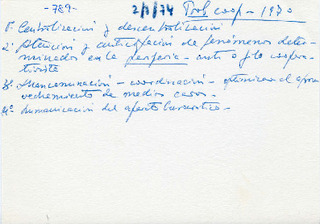 -789- 2/1/74 Prob. coop - 1970
1º Centralización y descentralización
2º Atención y anticipación de fenómenos deter-
minados en la periferia - anti o filo coopera-
tivista
3º Mancomunación - coordinación - optimizar el apro-
vechamiento de medios caros.
4º Humanización del aparato burocrático -